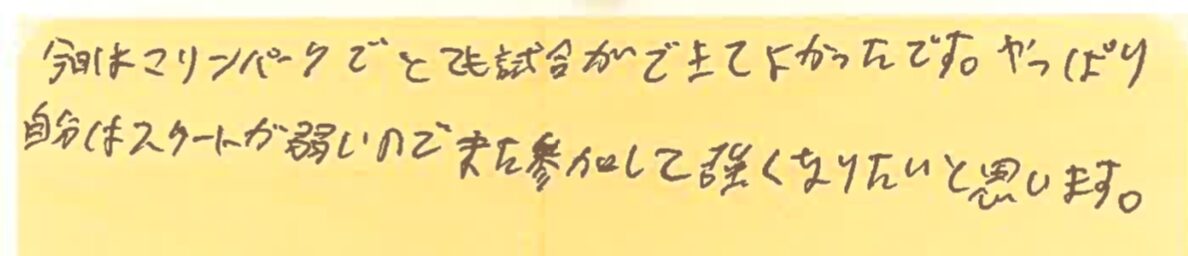 今日はマリンパークでとても試合ができてよかったです。やっぱり
自分はスタートが弱いのでまた参加して強くなりたいと思います。